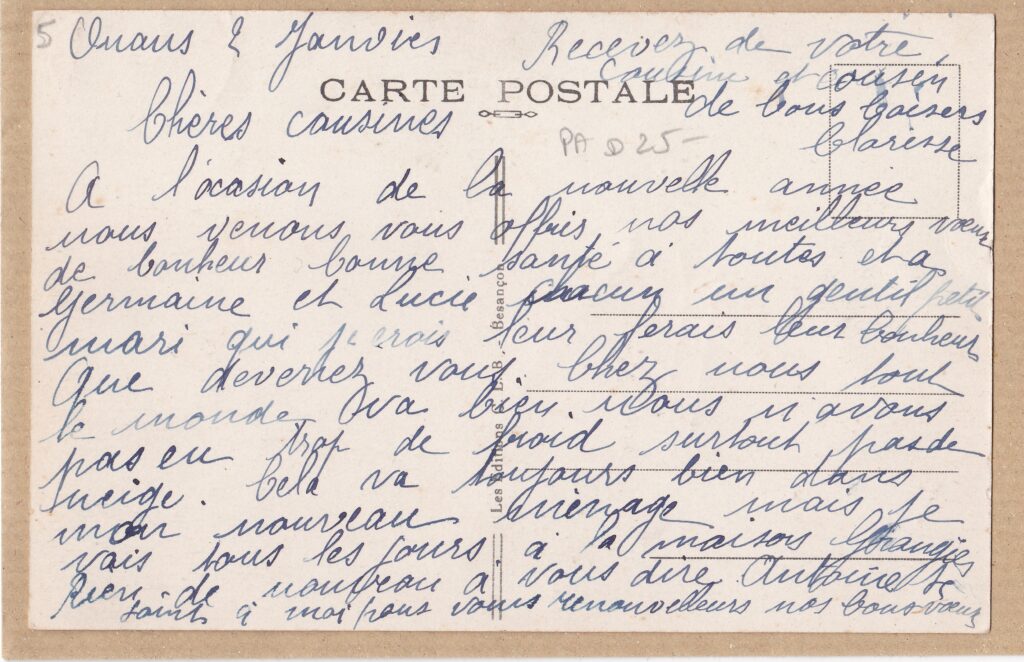 5
Onans 2 Janvier
CARTE POSTALE
PA D 25-
Chères cousines
A l'ocasion de la nouvelle année
nous venons vous offrir nos meilleurs vœux
de bonheur bonne santé à toutes et a
Germaine et Lucie chacun un gentil petit
mari qui je crois leur ferais leur bonheur
Que devenez vous Chez nous tout
le monde va bien. nous n'avons
pas eu trop de froid surtout pas de
neige. Cela va toujours bien dans
mon nouveau ménage mais je
vais tous les jours à la maison
Rien de nouveau a vous dire Antoine se
joint à moi pour vous renouvelleurs nos bons vœux
Recevez de votre
cousine et cousin
de bons baisers
Clarisse
Les Editions C. L. B, Besançon